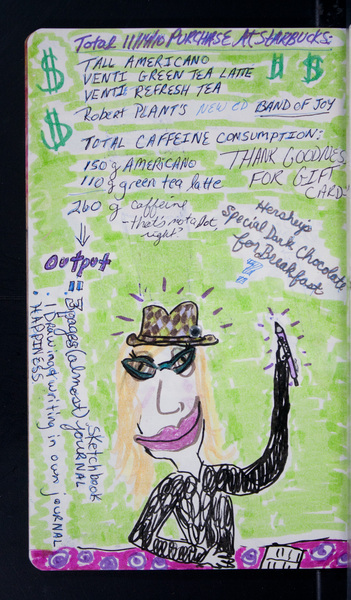 Total 11/14/10 PURCHASE At STARBUCKS:
$ $ $ $
TALL AMERICANO
VENTI GREEN TEA LATTE
VENTI REFRESH TEA
Robert PLANT'S NEW CD BAND OF JOY
TOTAL CAFFEINE CONSUMPTION:
150 g AMERICANO
110 g green tea latte
260 g caffeine
-that's not a lot, right?
THANK GOODNESS
FOR GIFT
CARDS
Hershey's
Special Dark Chocolate
for Breakfast
?
Output
= 3 pages (almost) JOURNAL
SKetchbook
• 1 Drawing and writing in own JOURNAL
• HAPPINESS